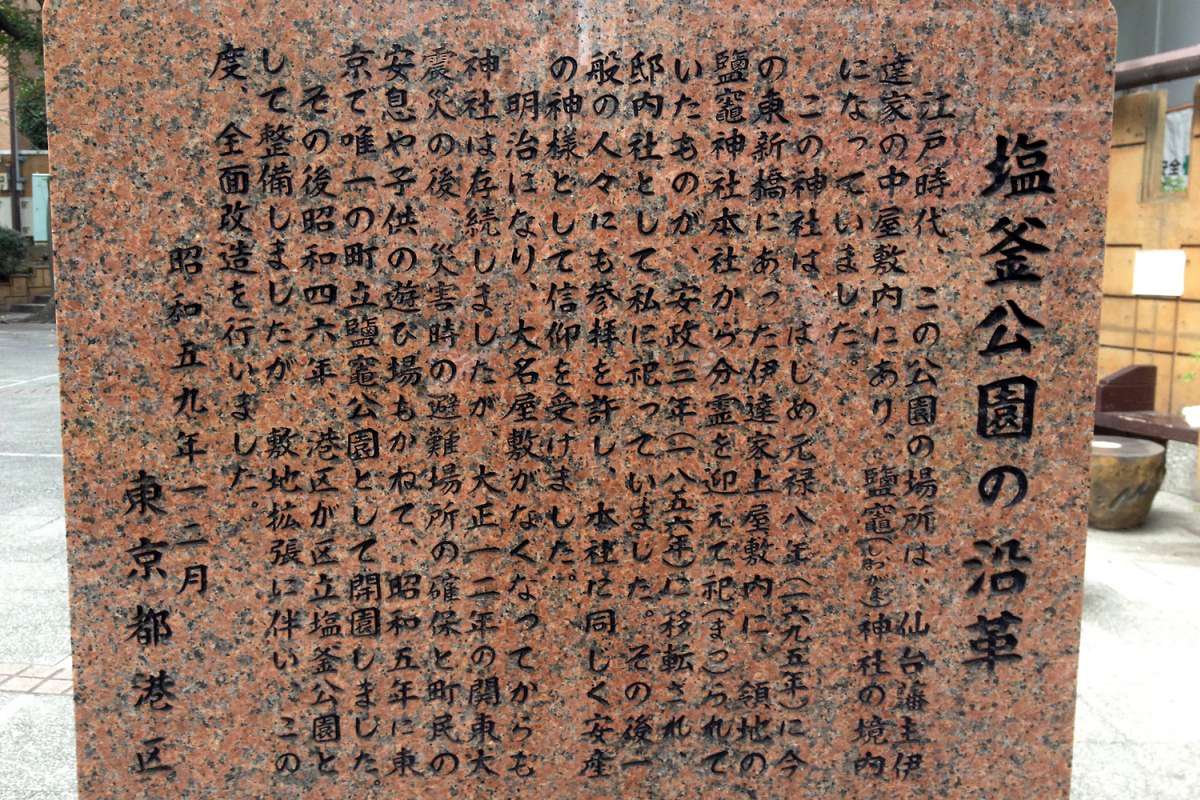 塩釜公園の沿革
江戸時代、この公園の場所は、仙台藩主伊
達家の中屋敷内にあり、鹽竈(しおがま)神社の境内
になっていました。
この神社は、はじめ元禄八年(一六九五年)に今
の東新橋にあった伊達家上屋敷内に、領地の
鹽竈神社本社から分霊を迎えて祀(まつ)られて
いたものが、安政三年(一八五六年)に移転され、
邸内社として私に祀っていました。その後一
般の人々にも参拝を許し、本社に同じく安産
の神様として信仰を受けました。
明治になり、大名屋敷がなくなってからも
神社は存続しましたが、大正一二年の関東大
震災の後、災害時の避難場所の確保と町民の
安息や子供の遊び場もかねて、昭和五年に東
京で唯一の町立鹽竈公園として開園しました。
その後昭和四六年、港区が区立塩釜公園と
して整備しましたが、敷地拡張に伴い、この
度、全面改造を行いました。
昭和五九年一二月
東京都港区
安全